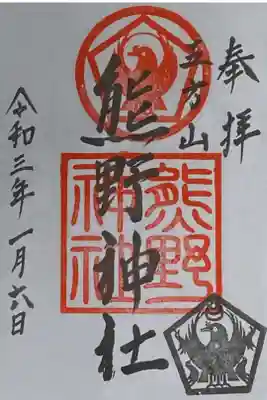 奉拝
立石山
熊野神社
熊野
神社
令和三年一月六日